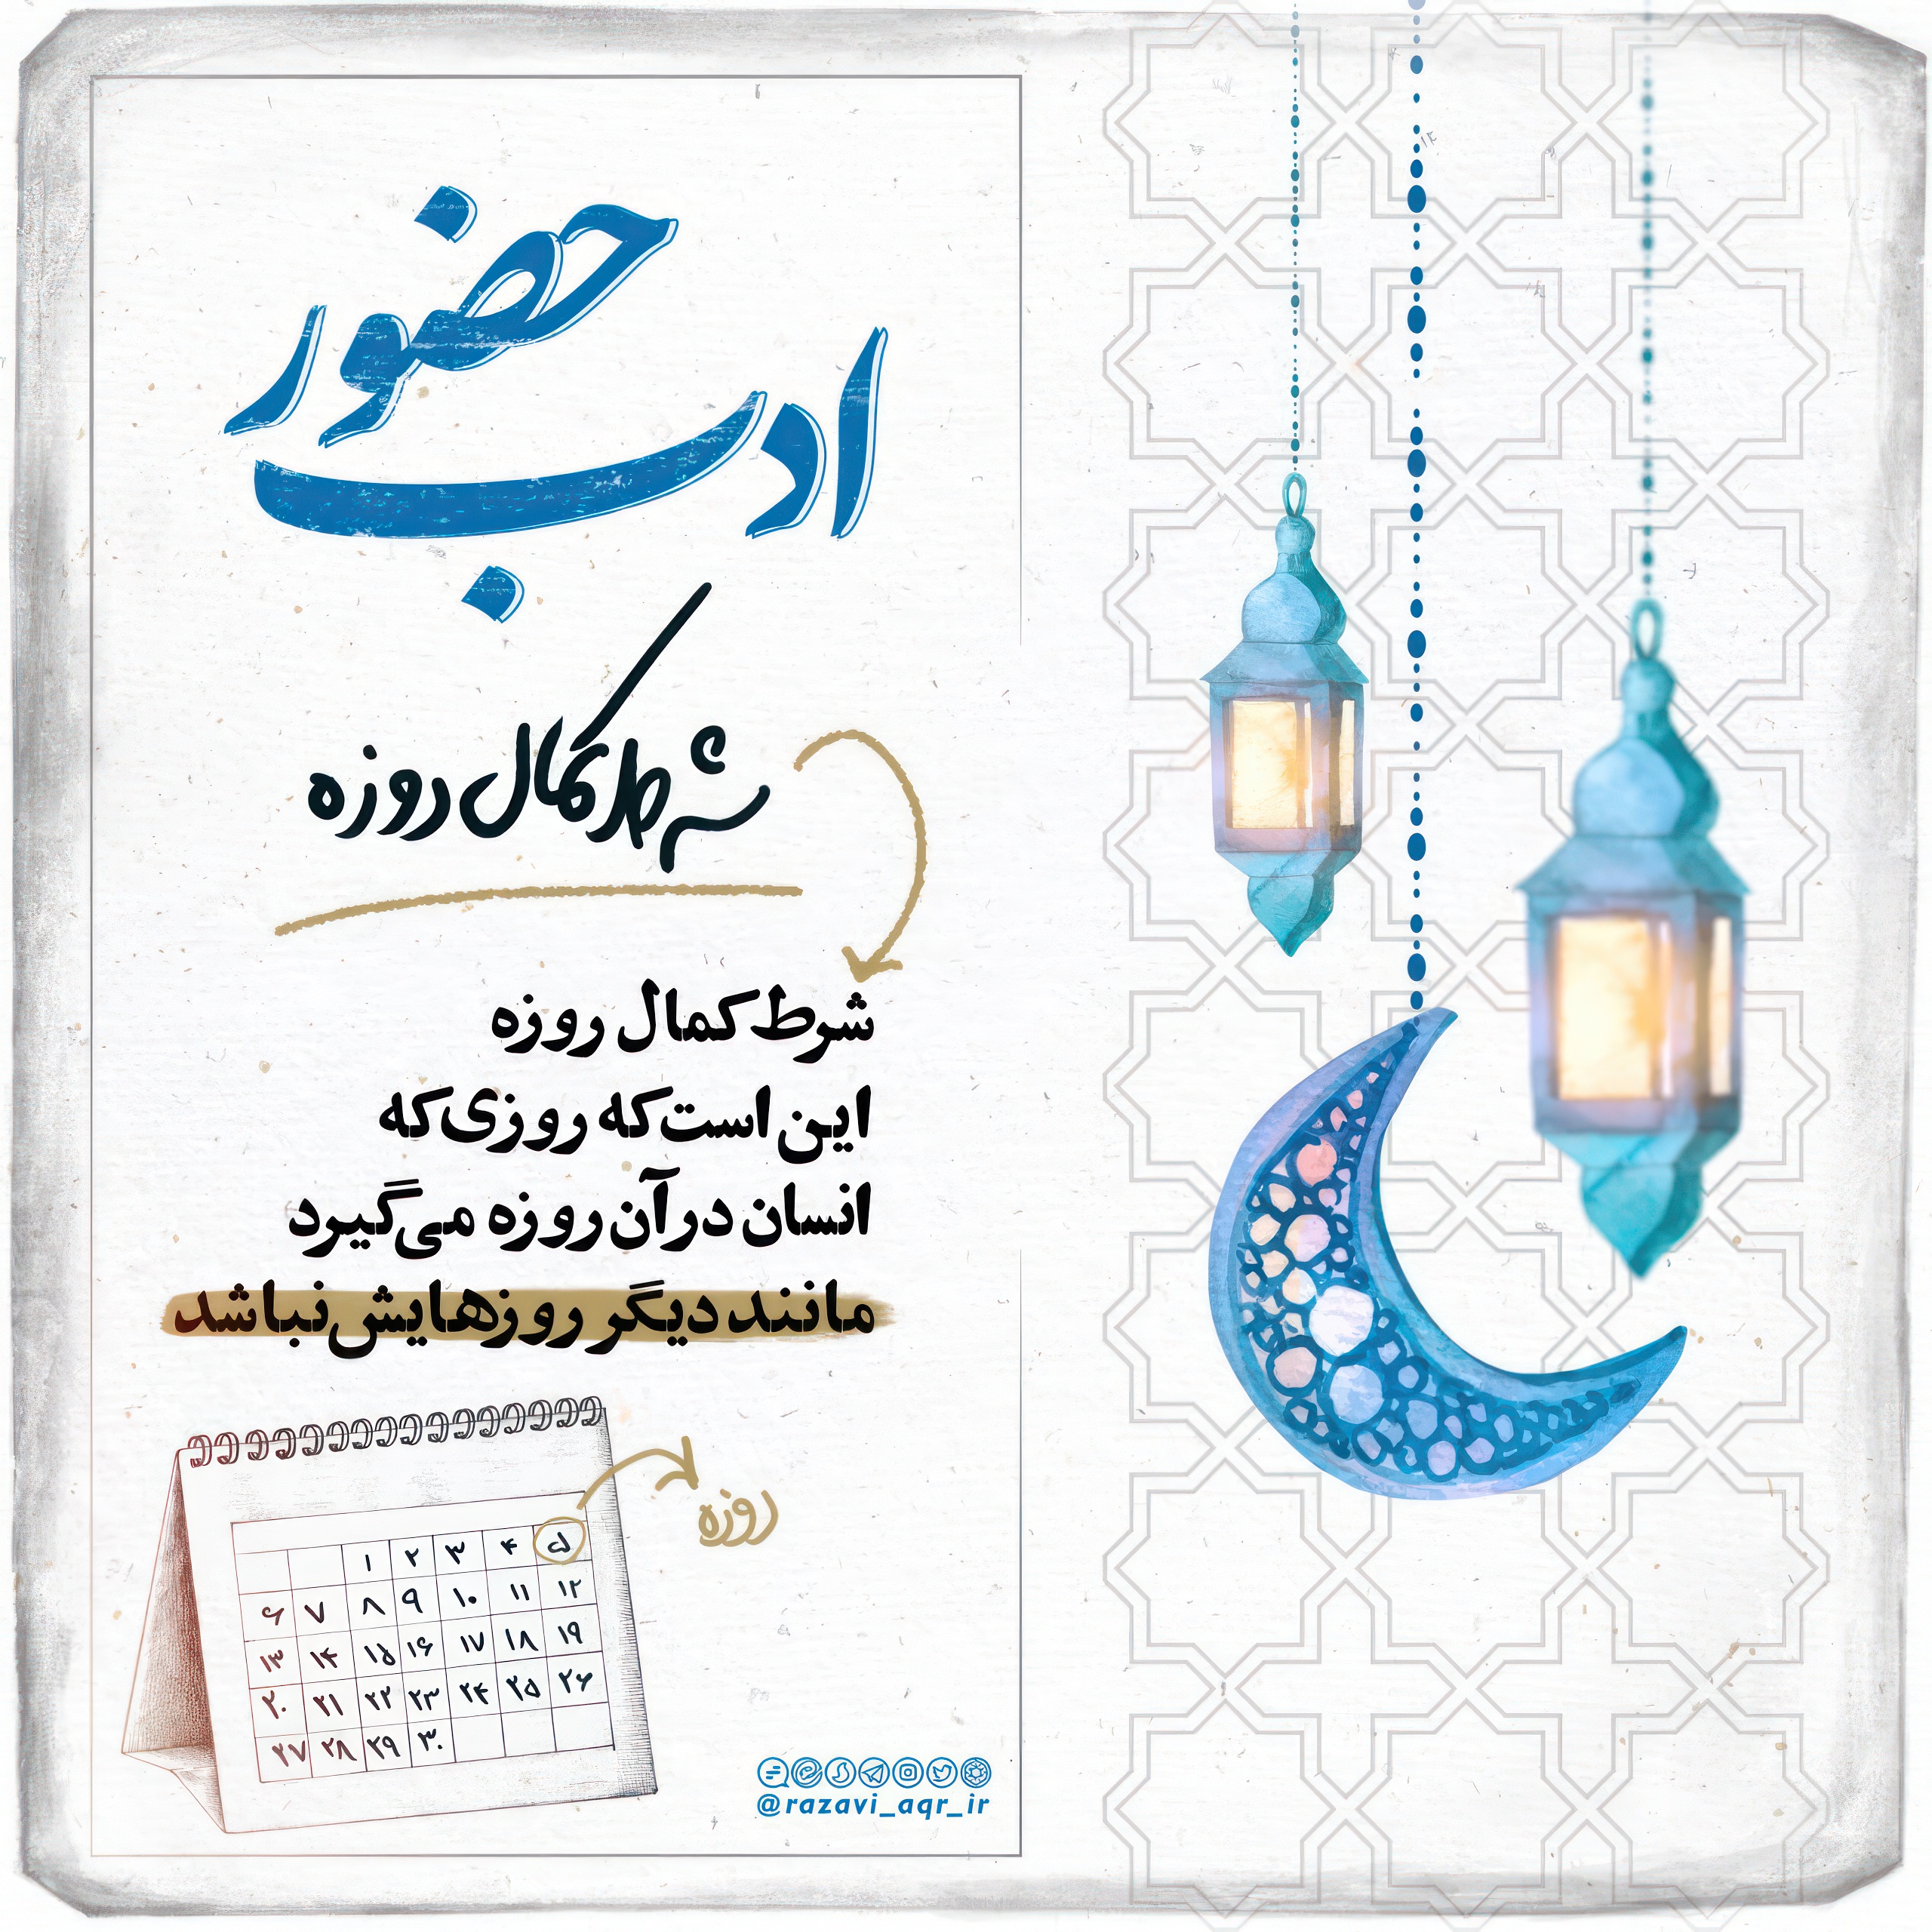 ادب حضور
شرط کمال روزه
شرط کمال روزه
این است که روزی که
انسان در آن روزه می‌گیرد
مانند دیگر روزهایش نباشد
روزه
۱ ۲ ۳ ۴ ۵
۶ ۷ ۸ ۹ ۱۰ ۱۱ ۱۲
۱۳ ۱۴ ۱۵ ۱۶ ۱۷ ۱۸ ۱۹
۲۰ ۲۱ ۲۲ ۲۳ ۲۴ ۲۵ ۲۶
۲۷ ۲۸ ۲۹ ۳۰
@razavi_aqr_ir